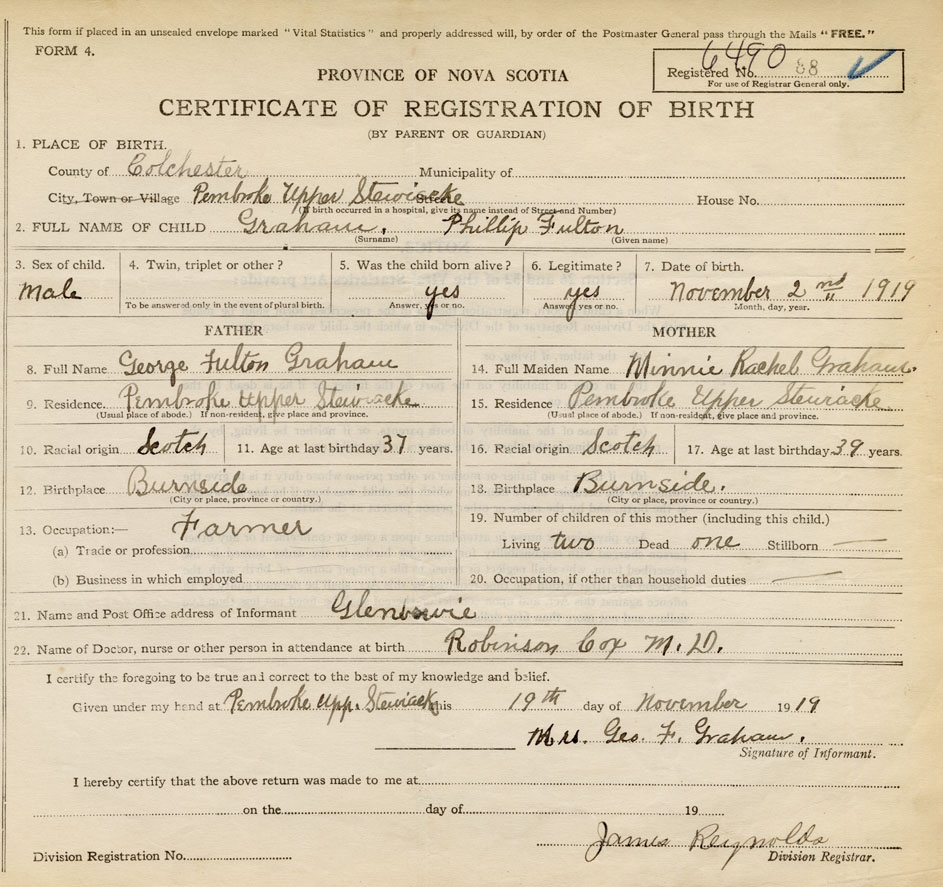 This form if placed in an unsealed envelope marked "Vital Statistics" and properly addressed will, by order of the Postmaster General pass through the Mails "FREE."
FORM 4.
6490
Registered No. 88
For use of Registrar General only.
PROVINCE OF NOVA SCOTIA
CERTIFICATE OF REGISTRATION OF BIRTH
(BY PARENT OR GUARDIAN)
1. PLACE OF BIRTH.
County of Colchester Municipality of
City, Town or Village Pembroke Upper Stewiacke House No.
(If birth occurred in a hospital, give its name instead of Street and Number)
2. FULL NAME OF CHILD Graham, Phillip Fulton
(Surname) (Given name)
3. Sex of child. 4. Twin, triplet or other? 5. Was the child born alive? 6. Legitimate? 7. Date of birth.
Male yes yes November 2nd 1919
To be answered only in the event of plural birth. Answer, yes or no. Answer, yes or no. Month, day, year.
FATHER MOTHER
8. Full Name George Fulton Graham 14. Full Maiden Name Minnie Rachel Graham.
9. Residence. Pembroke Upper Stewiacke 15. Residence Pembroke Upper Stewiacke
(Usual place of abode.) If non-resident, give place and province. (Usual place of abode.) If non-resident, give place and province.
10. Racial origin Scotch 11. Age at last birthday 37 years. 16. Racial origin Scotch 17. Age at last birthday 39 years.
12. Birthplace Burnside 18. Birthplace Burnside.
(City or place, province or country.) (City or place, province or country.)
13. Occupation:— Farmer 19. Number of children of this mother (including this child.)
(a) Trade or profession Living two Dead one Stillborn —
(b) Business in which employed 20. Occupation, if other than household duties —
21. Name and Post Office address of Informant
22. Name of Doctor, nurse or other person in attendance at birth Robinson Cox M.D.
I certify the foregoing to be true and correct to the best of my knowledge and belief.
Given under my hand at Pembroke Upp. Stewiacke this 19th day of November 1919
Mrs. Geo. F. Graham.
Signature of Informant.
I hereby certify that the above return was made to me at
on the day of 19
James Reignolds
Division Registration No. Division Registrar.